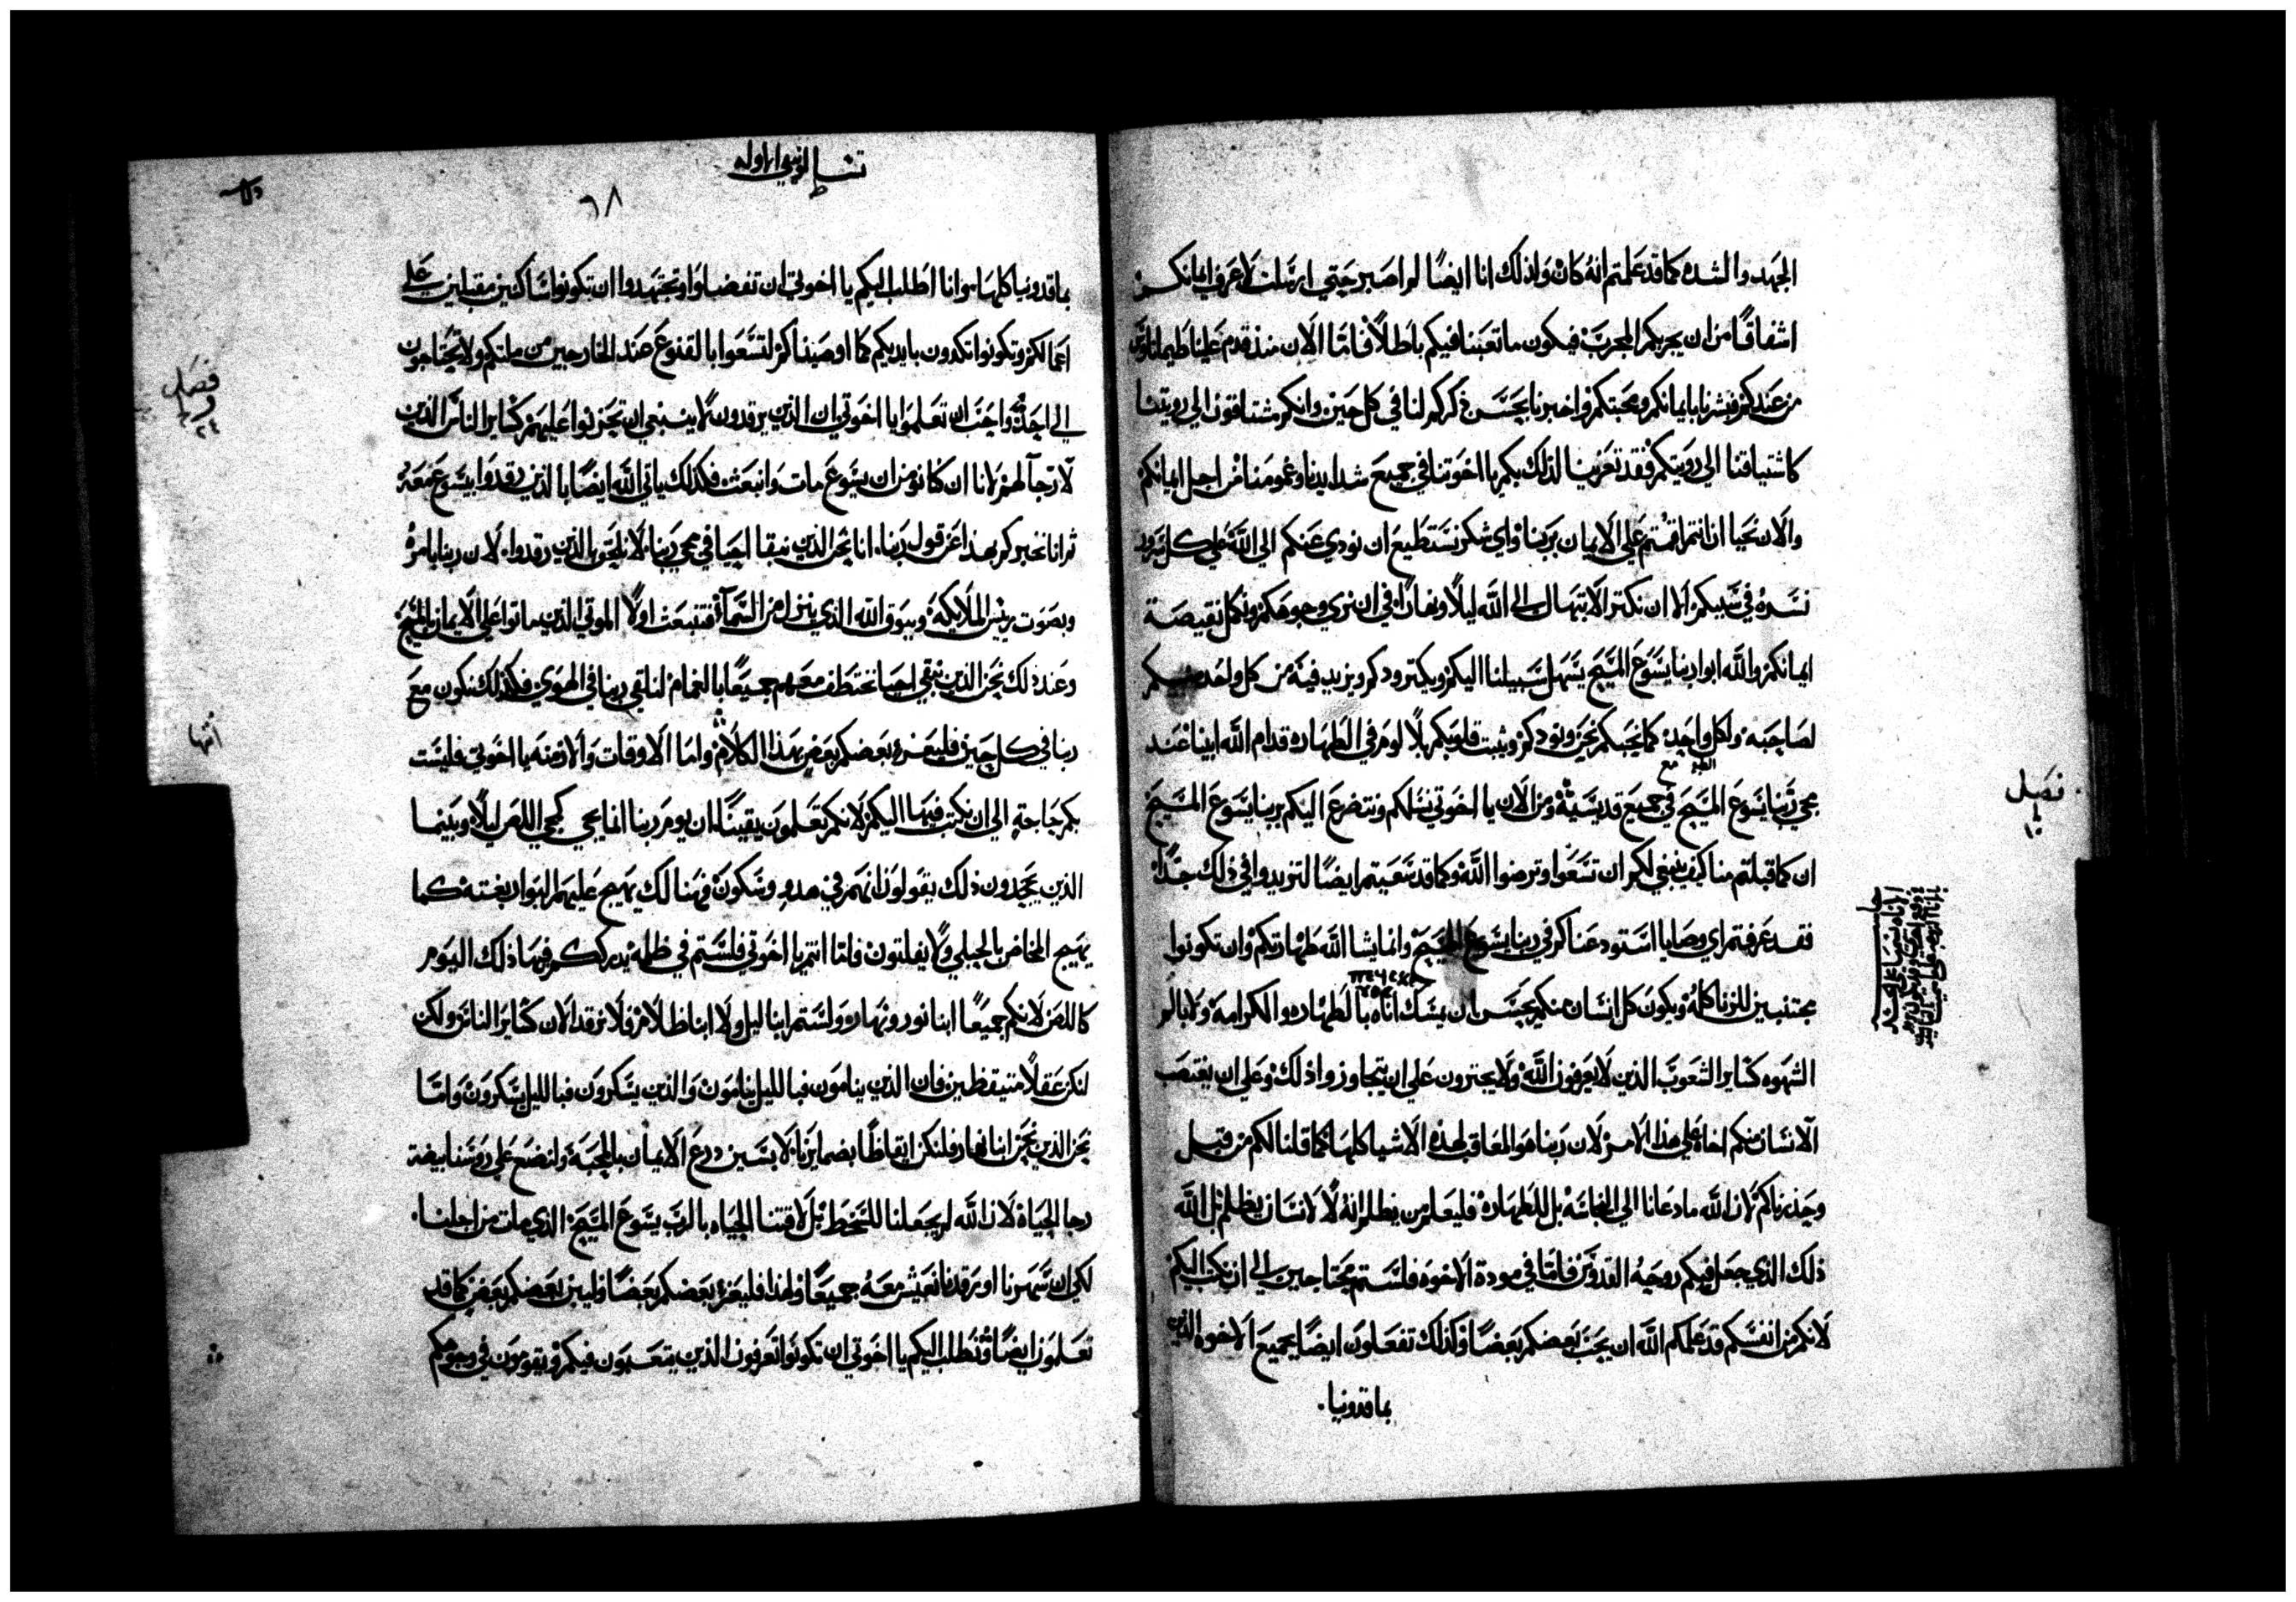 الجهد والشده كما قد علمتم انه كان ولذلك انا ايضًا لم اصبر حتي ارسلت لاعرف ايمانكم
اشفاقًا من ان يجربكم المجرب فيكون ما تعبنا فيكم باطلاً فاما الان منذ قدم علينا طيماتاوس
من عندكم فبشرنا بايمانكم ومحبتكم واخبرنا بحسن ذكركم لنا في كل حين وانكم مشتاقون الي رويتنا
كاشتياقنا الي رويتكم فقد تعزينا لذلك بكم يا اخوتنا في جميع شدايدنا وغمومنا من اجل ايمانكم
والان نحيا ان انتم اقمتم علي الايمان بربنا واي شكر نستطيع ان نودي عنكم الي الله علي كل سرور
نسره في سببكم الا ان نكثر الابتهال الي الله ليلاً ونهارًا في ان نري وجوهكم ونكمل نقيصة
ايمانكم والله ابوا ربنا يسوع المسيح يسهل سبيلنا اليكم ويكثر ودكم ويزيد فيه من كل واحد منكم
لصاحبه ولكل واحد كما نحبكم نحن ونودكم ويثبت قلوبكم بلا لوم في الطهاره قدام الله ابينا عند
مجي ربنا يسوع المسيح في جميع قديسيه ومن الان يا اخوتي نسلكم ونتضرع اليكم بربنا يسوع المسيح
ان كما قبلتم منا كيف ينبغي لكم ان تسعوا وترضوا الله وكما قد سعيتم ايضًا لتزيدوا في ذلك جدًا
فقد عرفتم اي وصايا استودعناكم في ربنا يسوع المسيح وانما يشا الله طهارتكم وان تكونوا
مجتنبين للزنا كله ويكون كل انسان منكم يحسن ان يمسك اناه بالطهاره والكرامه ولا بالم
الشهوه كساير الشعوب الذين لا يعرفون الله ولا يجترون علي ان يتجاوزوا ذلك وعلي ان يغتصب
الانسان منكم اخاه علي هذا الامر لان ربنا هو المعاقب لهذه الاشيا كلها كما قلنا لكم من قبل
وحذرناكم لان الله ما دعانا الي النجاسه بل للطهاره فليعلم من يظلم انه لا لانسان يظلم بل الله
ذلك الذي جعل فيكم روحه القدوس فاما في مودة الاخوه فلستم محتاجين الي ان نكتب اليكم
لانكم من انفسكم قد علمكم الله ان يحب بعضكم بعضًا وكذلك تفعلون ايضًا بجميع الاخوه الذين
بماقدونيا
فصل
تسالونيقي الاوله
٦٨
بماقدونيا كلها وانا اطلب اليكم يا اخوتي ان تفضلوا وتجتهدوا ان تكونوا ساكنين مقبلين علي
اعمالكم وتكونوا تكدون بايديكم كما اوصيناكم لتسعوا بالقنوع عند الخارجين من ملتكم ولا يحتاجون
الي احد واحب ان تعلموا يا اخوتي ان الذين يرقدون لا ينبغي ان تحزنوا عليهم كساير الناس الذين
لا رجآ لهم لانا ان كنا نومن ان يسوع مات وانبعث فكذلك ياتي الله ايضًا بالذين رقدوا بيسوع معه
ثم انا نخبركم بهذا عن قول ربنا انا نحن الذين نبقا احيا في مجي ربنا لا نلحق بالذين رقدوا لان ربنا بامره
وبصوت ريس الملايكه وببوق الله الذي ينزل من السمآ فتنبعث اولاً الموتي الذين ماتوا علي الايمان بالمسيح
وعند ذلك نحن الذين نبقي احيا نختطف معهم جميعًا بالغمام لنلقي ربنا في الهوي فكذلك نكون مع
ربنا في كل حين فليعز بعضكم بعض بهذا الكلام واما الاوقات والازمنه يا اخوتي فليست
بكم حاجة الي ان نكتب فيها اليكم لانكم تعلمون يقينًا ان يوم ربنا انما يجي كمجي اللص ليلاً وبينما
الذين يجحدون ذلك يقولون انهم في هدو وسكون فهنالك يهيج عليهم البوار بغته كما
يهيج المخاض بالحبلي ولا يفلتون فاما انتم يا اخوتي فلستم في ظلمه يدرككم فيها ذلك اليوم
كاللص لانكم جميعًا ابنا نور ونهار ولستم ابنا ليل ولا ابنا ظلام فلا نرقد الان كساير الناس ولكن
لنكن عقلاً متيقظين فان الذين ينامون فبالليل ينامون والذين يسكرون فبالليل يسكرون واما
نحن الذين نحن ابنا نهار فلنكن ايقاظًا بضمايرنا لابسين درع الايمان بالمحبة ولنضع علي روسنا بيضة
رجا الحياة لان الله لم يجعلنا للسخط بل لاقتنا الحياه بالرب يسوع المسيح الذي مات من اجلنا
لكي ان سهرنا او رقدنا نعيش معه جميعًا ولهذا فليعز بعضكم بعضًا وليبن بعضكم بعض كما قد
تعلمون ايضًا ونطلب اليكم يا اخوتي ان تكونوا تعرفون الذين يتعبون فيكم ويقومون في وجوهكم
فصل
انها